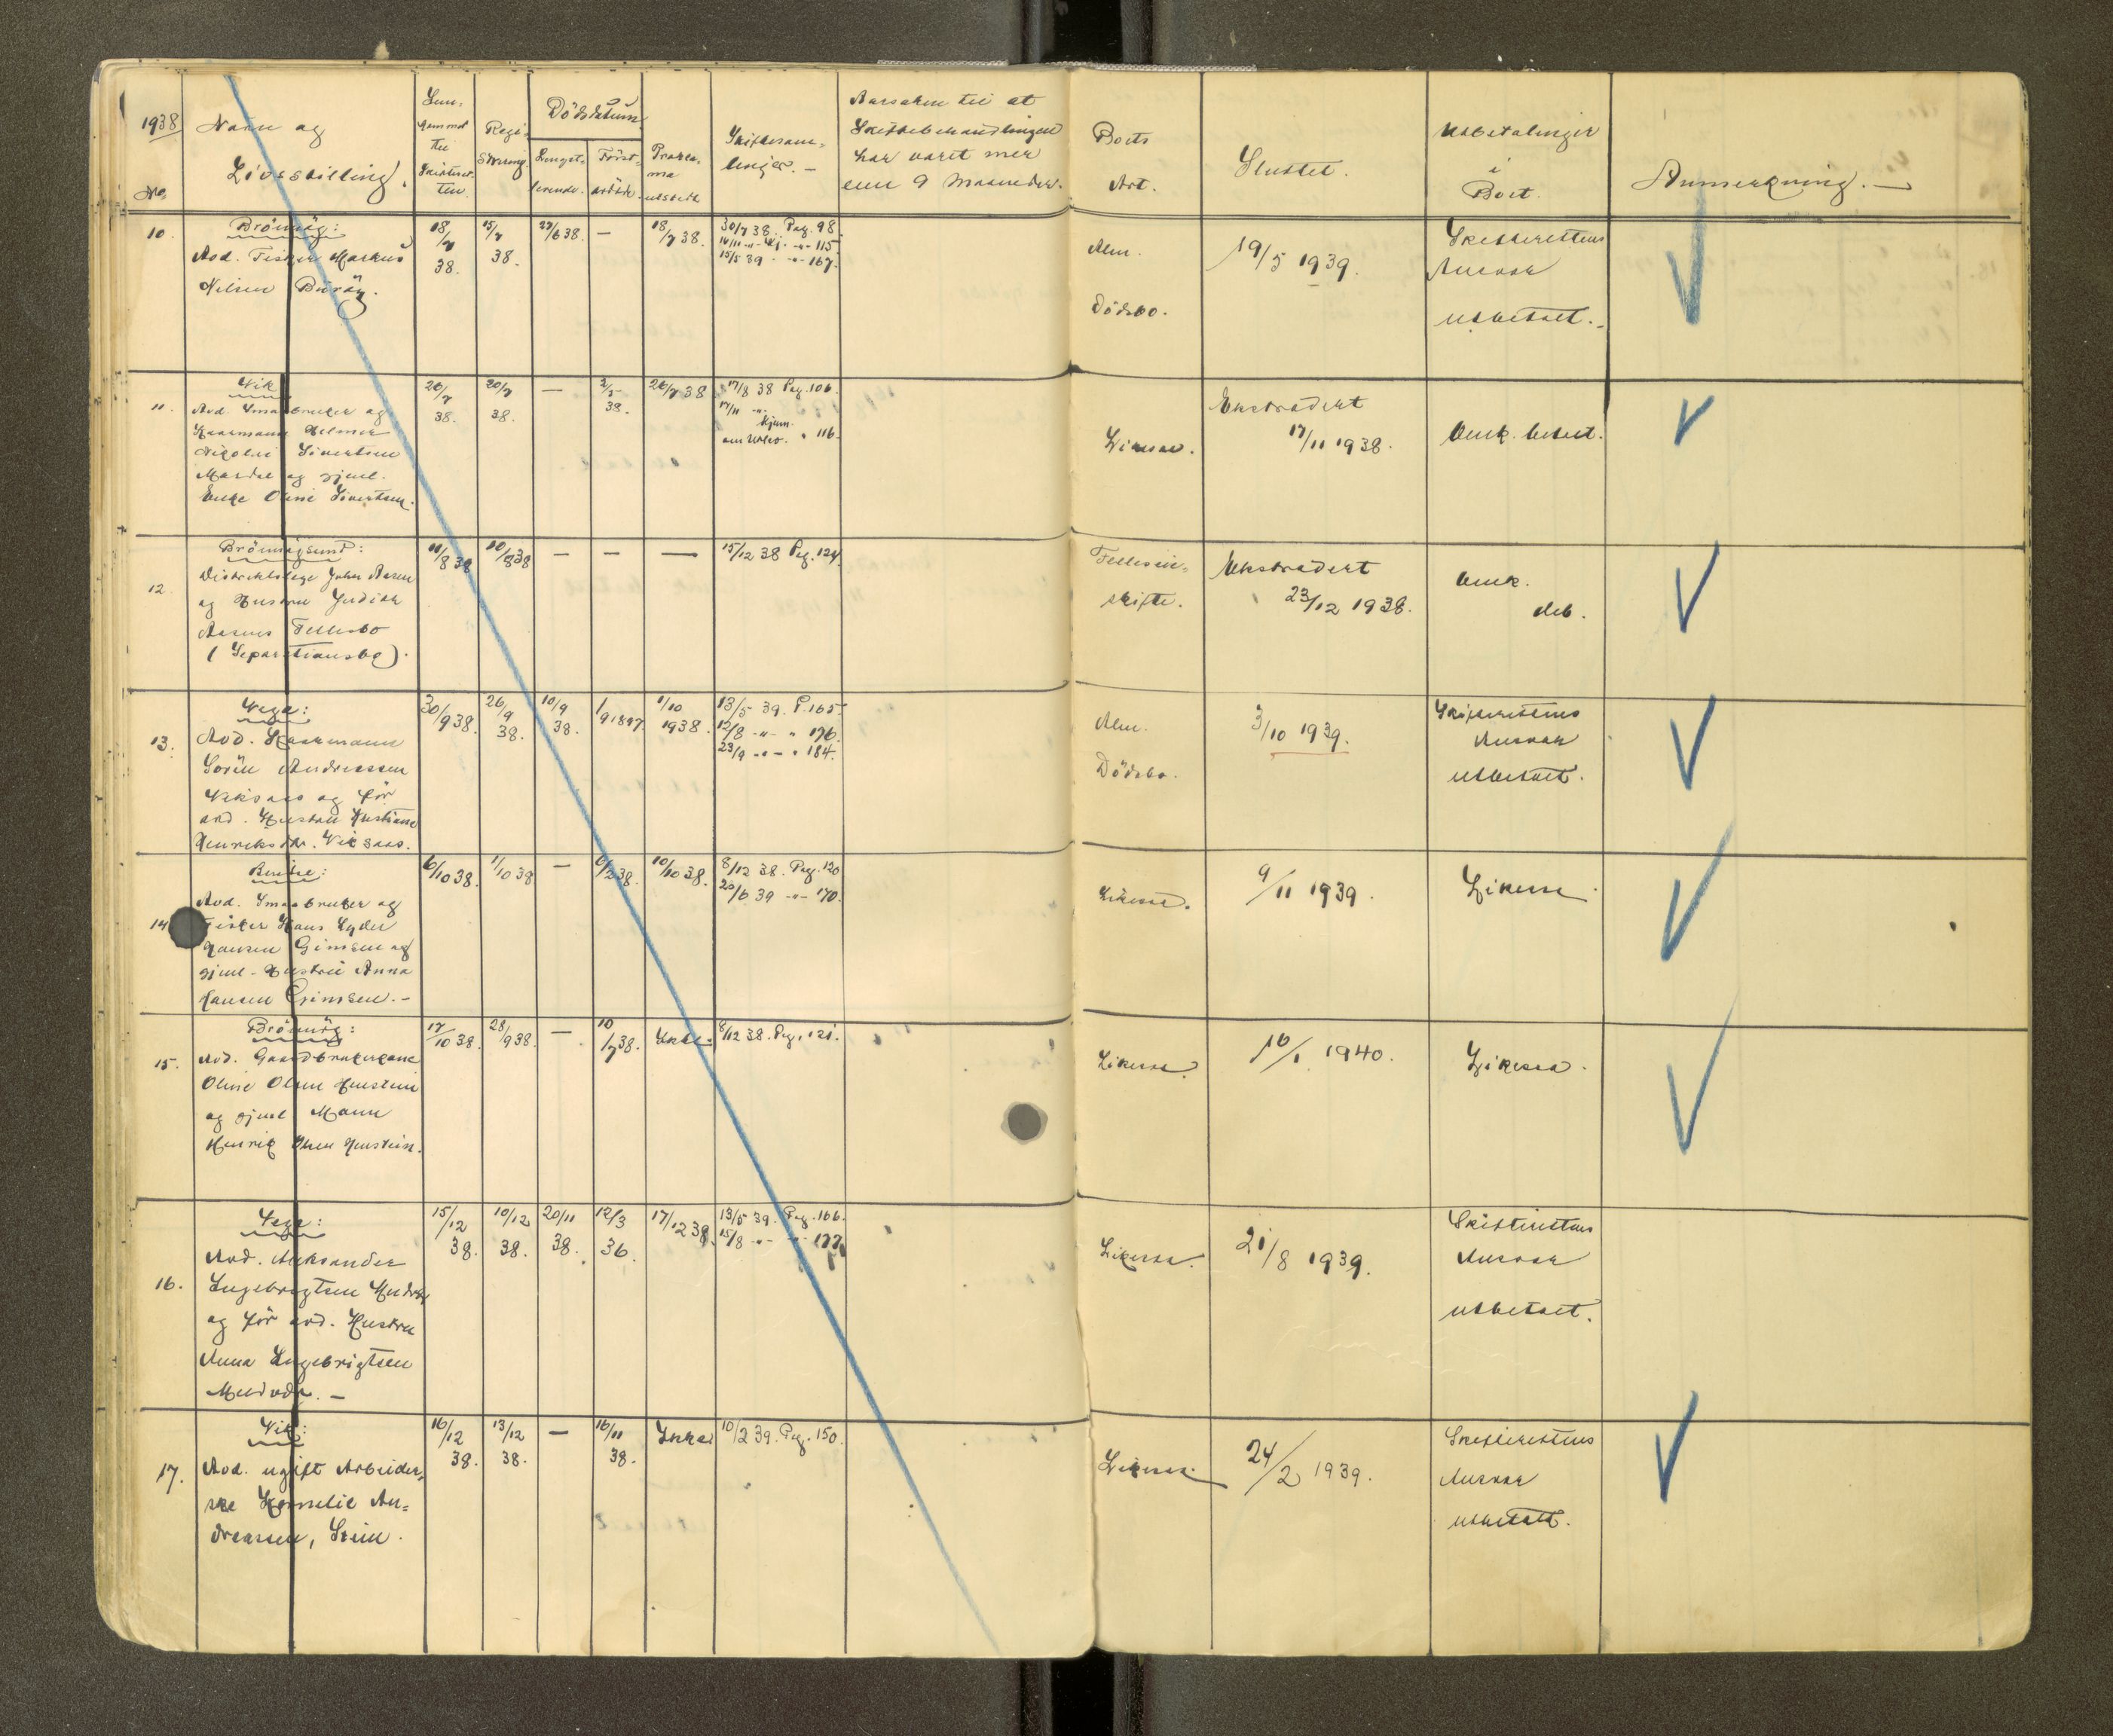 1938
No.
Navn og
Livsstilling.
Regi-
strering.
Dödsdatum.
Lengst-
levende.
Först-
avdöde.
Prokla-
ma
utstedt
Skiftesam-
linger.-
Aarsaken til at
Skiftebehandlingen
har varet mer
enn 9 Maaneder.
Boets
Art.
Sluttet.
Utbetalinger
i
Boet.
Anmerkning.-
10.
Brönnöy:
Avd. Fisker Markus
Nilsen Buröy.
18/7
38.
15/7
38.
27/6 38.
-
18/7 38.
30/7 38. Pag. 98.
15/5 39. -"- 167.
Alm.
Dödsbo.
19/5 1939.
Skifterettens
Ansvar
utbetalt.-
11.
Vik
Avd. Smaabruker og
Nikolai Sivertsen
og gjenl.
Enke Oline Sivertsen.
26/7
38.
20/7
38.
-
2/5
38.
26/7 38
17/8 38 Pag. 106.
17/11 -"-
" 116.
Likesaa.
Ekstradert
17/11 1938.
12
Brönnöysund:
Distriktslege John Aasen
og Hustru Judith
Aasens Fellesbo
(Separationsbo).
11/8 38
10/8 38
-
-
-
15/12 38 Pag. 124.
skifte.
Ekstradert
23/12 1938.
13.
Vega:
Avd. Kaarmann
Sören Andreassen
Viksaas og för
avd. Hustru Kristiane
Henriksdtr. Viksaas.
30/9 38.
26/9
38.
10/9
38.
1/9 1897
1/10
1938.
13/5 39. P. 165.
12/8 -"- " 176.
23/9 -"- " 184.
Alm.
Dödsbo.
3/10 1939.
Skifterettens
Ansvar
utbetalt.
14
Avd. Smaabruker og
Fisker Hans Lyder
Hansen Grimsen og
gjenl. Hustru Anna
Hansen Grimsen.-
6/10 38.
1/10 38
-
6/2 38.
10/10 38.
8/12 38. Pag. 120
20/6 39 -"- 170.
Likesaa.
9/11 1939.
Likesaa.
15.
Brönnöy:
Avd. Gaardbrukerkone
Oline Olsen Henstein
og gjenl Mann
Henrik Olsen Henstein.
17/10 38.
28/9 38.
-
10/7 38.
8/12 38. Pag. 121.
Likesaa.
16/1 1940.
Likesaa.
16.
Vega:
Avd. Aleksander
Ingebrigtsen
og för avd. Hustru
Anna Ingebrigtsen
15/12
38.
10/12
38.
20/11
38.
12/3
36.
17/12 38.
13/5 39. Pag. 166.
15/8 -"- -"- 177.
Likesaa.
21/8 1939.
Skifterettens
Ansvar
utbetalt.
17.
Vik:
Avd. ugift Arbeider-
ske Kornelie An-
dreassen, Stein.
16/12
38.
13/12
38.
-
16/11
38.
10/2 39. Pag. 150.
Likesaa.
24/2 1939.
Skifterettens
Ansvar
utbetalt.